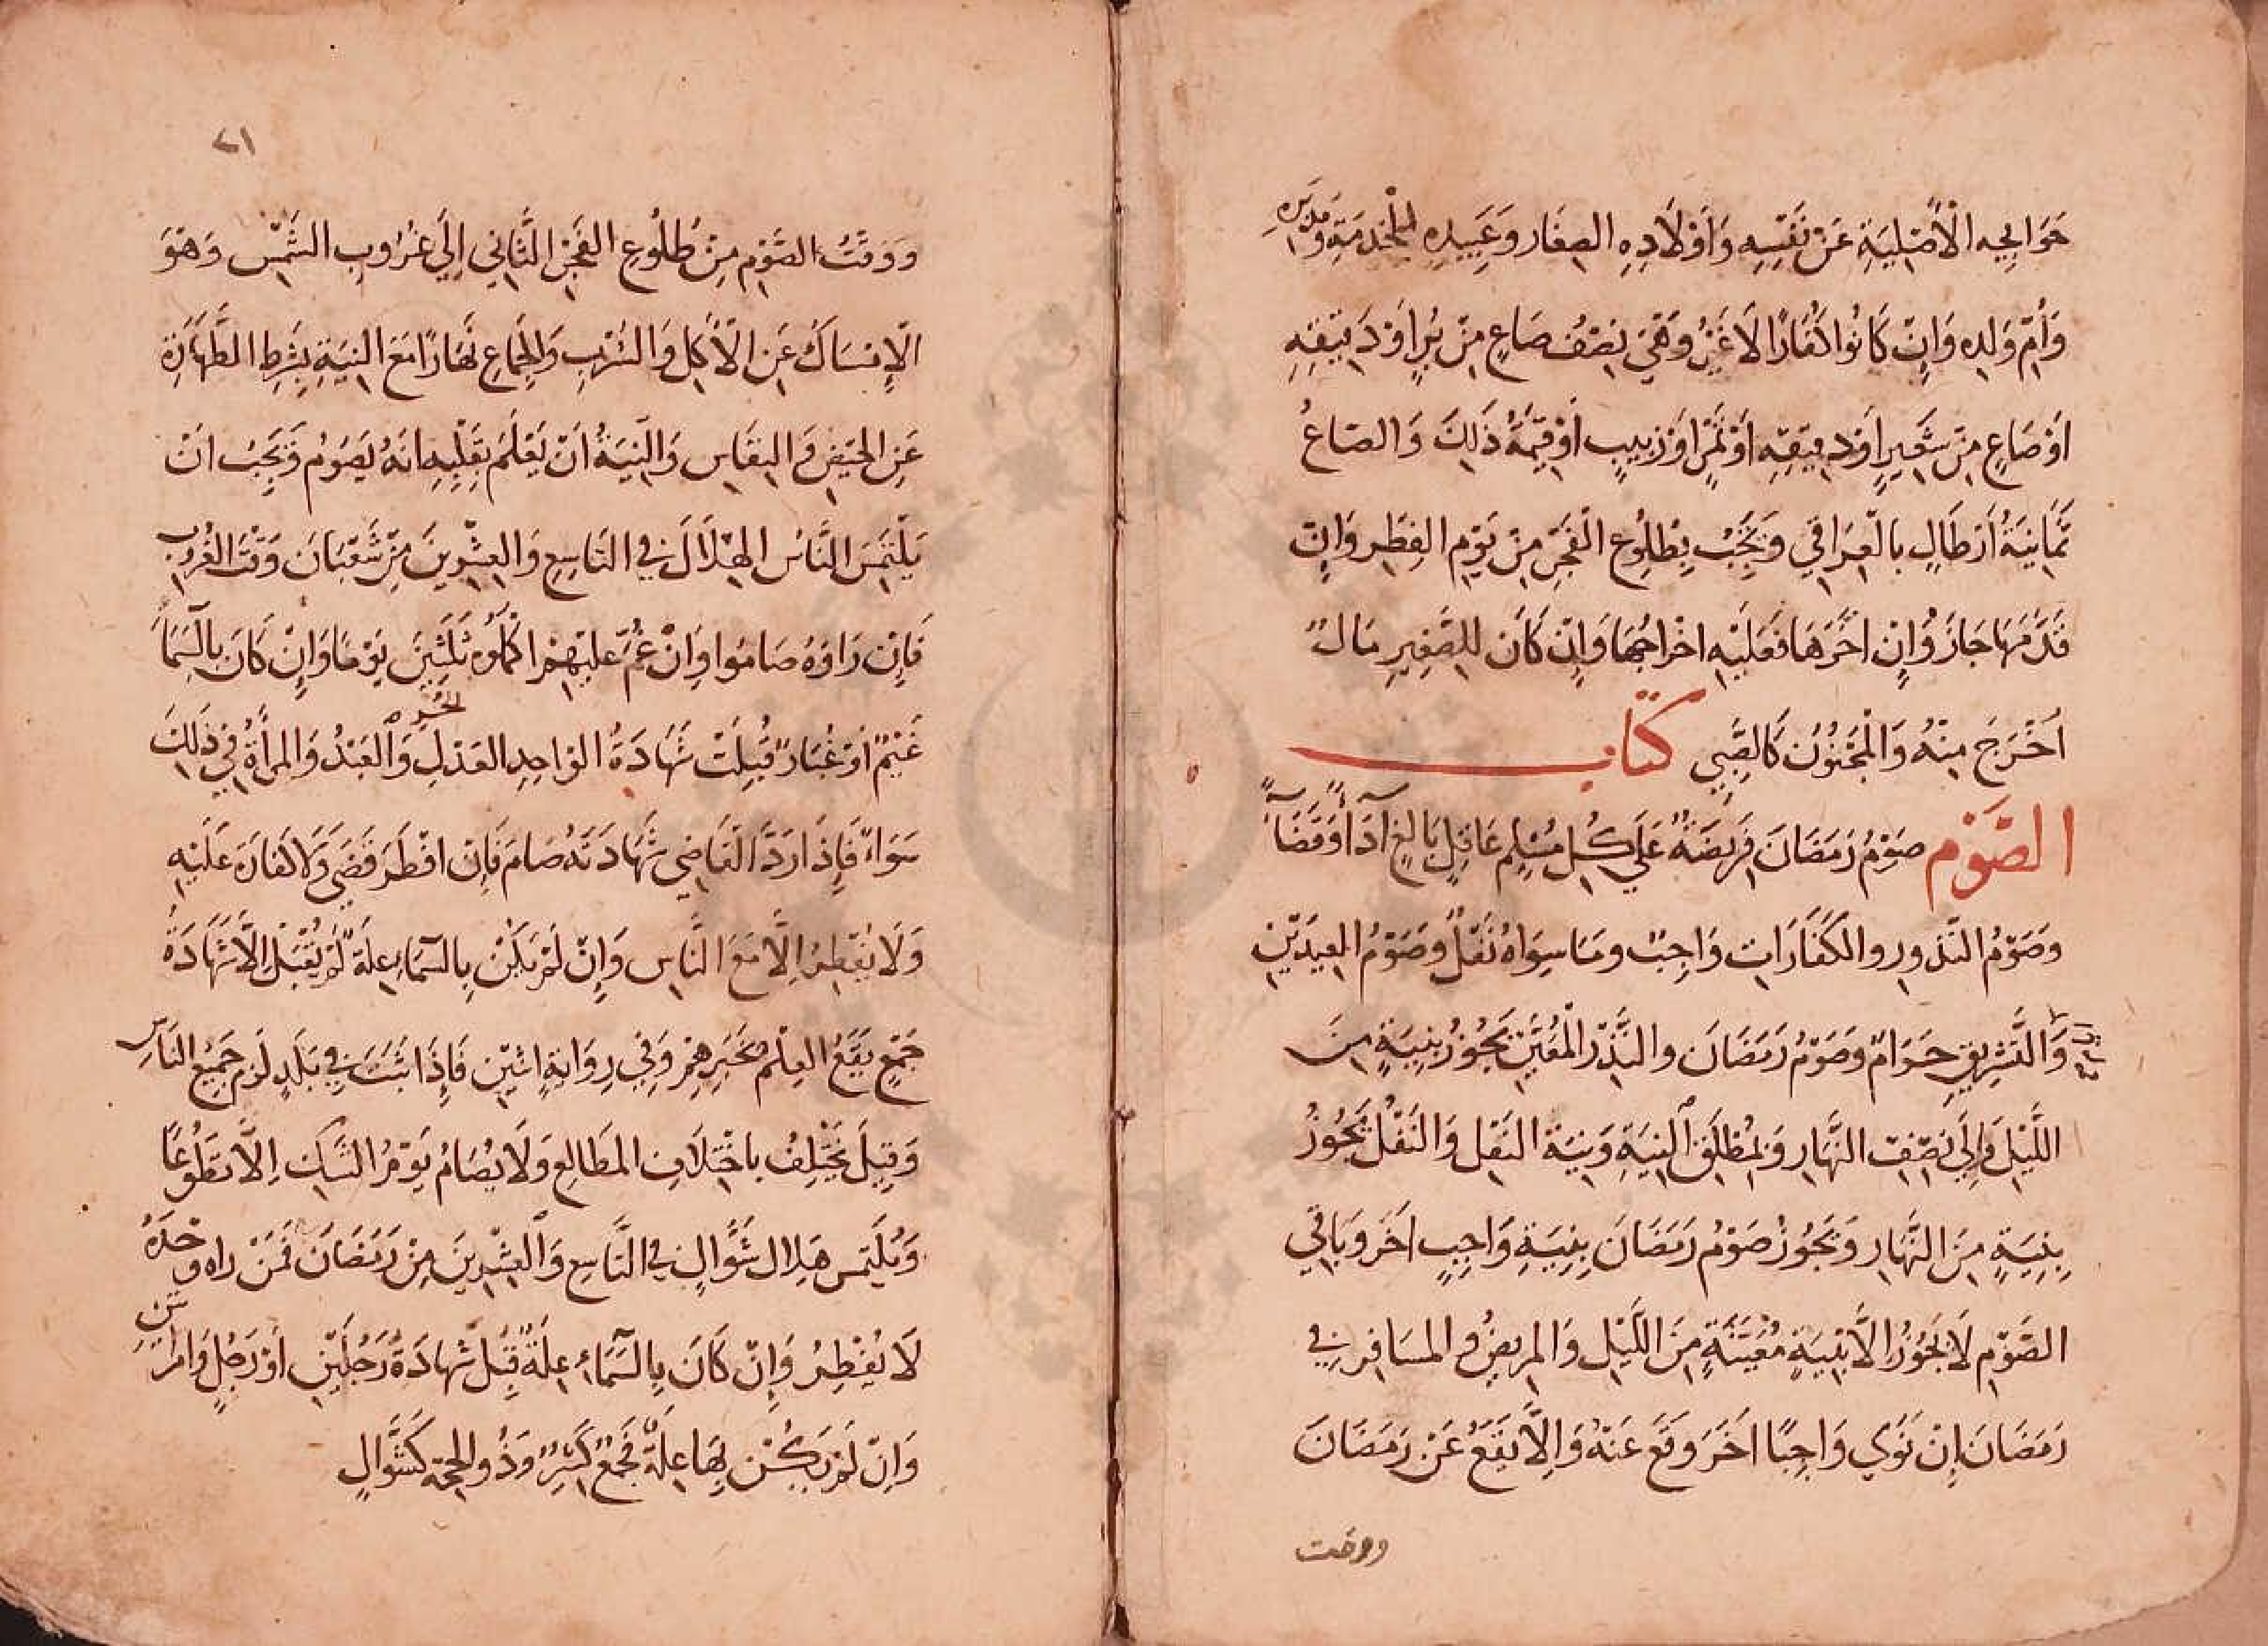 حَوَايِجِه الْأَصْلِيَةِ عَنْ نَفْسِهِ وَأَوْلَادِهِ الصِغَار وَعَبِيدِهِ لِلْخِدْمَةِ وَمُدَبَّرِهِ
وَأُمِّ وَلَدِه وَإِنْ كَانُوا كُفَّارًا لَا غَيْرُ وَهْيَ نِصْفُ صَاعٍ مِنْ بُرٍ اوْ دَقِيقِهِ
اوْ صَاعٍ مِنْ شَعِيرٍ اوْ دقِيقِهِ اوْ تَمْرٍ اوْ زبيبٍ اوْ قِيْمَةُ ذَلِكَ وَالصَاعُ
ثَمَانِيَةُ أَرْطَالٍ بالْعِرَاقي وَتَجِبُ بِطْلُوعِ الْفَجْرِ مِنْ يَوْمِ الفِطْرِ وَإِنْ
قَدَّمَهَا جَازَ وُإِنْ اخَّرَهَا فَعَلَيْهِ اخْرَاجُهَا وَإِنْ كَانَ للِصَّغِيرِ مَالٌ
اُخْرَجَ مِنْهُ وَالْمَجْنُوُنُ كَالصَّبِي كتاب
الصَّوْمِ صَوْمُ رَمَضَانَ فَرِيضَةٌ عَلَي كُلِ مُسْلِمٍ عَاقِلٍ بَالِغٍ آدَاً وَقَضَاً
وصَوْمُ النّذورِ والكَفَّارَات وَاجِبٌ ومَا سِوَاهُ نَفْلٌ وصَوْمُ العِيدَيْنِ
وَالتَّشْرِيقِ حَرَامٌ وصَوْمُ رَمَضَانَ والنَّذْرِ الْمُعَيَّنِ يَجُوزُ بِنِيَةٍ مِنَ
اللَّيْلِ وَإِلَي نِصْفِ النَّهَارِ وَبِمُطْلَقِ النِيَةِ وَنِيَةِ النَفْلِ وَالنَفْلُ يَجُوزُ
بِنِيَةٍ مِنَ النَّهَارِ وَيَجُوزُ صَوْمُ رَمَضَانَ بِنِيَةِ وَاجِبٍ اخَرَ وَبَاقي
الصَّوْمِ لَا يَجُوزُ إلَّا بِنِيَةٍ مُعَيَّنَةٍ مِنَ اللَّيْلِ وَالمرِيضُ والمسَافِرِ فِي
رَمَضَانَ إِنْ نَوَي وَاجِبًا اخَرَ وَقَعَ عَنْهُ وَإِلَّا يَقَعُ عَنْ رَمَضَانَ
ووقت
٢١
وَوَقْتُ الصَّوْمِ مِنْ طُلُوعِ الفَجْرِ الثَّانِي إِلَي غُرُوبِ الشَّمْسِ وَهْوَ
الْإِمْسَاكُ عَنِ الْأَكِلِ وَالشُرْبِ وَالجِمَاعِ نَهَارًا مَعَ النِيَةِ بِشَرْطِ الطَّهَارَةِ
عَنِ الحَيْضِ وَالنِفَاسِ وَالنِيَةُ انْ يَعْلَمَ بِقَلْبِهِ انَهُ يَصُوَمُ وَيَجِبُ انْ
يَلْتَمِسَ النَّاسُ الهِلَالَ فِي التَاسِعِ وَالعِشْرِينَ مِنْ شَعْبَانَ وَقْتَ الغُرُوب
فَإِنْ رَاوْهُ صَامُوا وَإِنْ غُمَّ عليْهِمْ اكْمَلُوه ثَلَثِينَ يَوْمًا وَإِنْ كَانَ بالسَّمَآ
غَيْمٌ اوْ غُبَارٌ قُبِلَتْ شَهَادَةُ الوَاحِدِ العَدْلِ الحُرِ وَالعَبْدُ وَالمرْأَةُ فِي ذَلِكَ
سَوَاءٌ فَإِذَا رَدَّ القَاضِي شَهَادَتَهُ صَامَ فَإِن افْطَرَ قَضَي وَلَا كَفَارَةَ عَلَيْهِ
وَلَا يُفْطِرُ إِلَّا مَعَ النَّاسِ وَإِنْ لَمْ يَكُنْ بِالسَّمَاءِ عِلَةٌ لَمْ يُقْبَلْ إِلَّا شَهَادَةُ
جَمْعٍ يَقَعُ العِلْمُ بِخَبَرِهِمْ وَفِي رِوَايَةٍ اثنَيْنِ فَإِذَا ثَبَتَ فِي بَلَدٍ لَزِم جَمِيْعَ النَاسِ
وَقِيلَ يَخْتِلِفُ باخْتِلَافِ المَطَالِعِ وَلَا يُصَامُ يَوْمُ الشَكِ إِلَّا تَطَوُعًا
وَيُلْتَمَس هِلال شَوَّالٍ في التَّاسِعِ وَالعِشْرِينَ مِنْ رَمَضَانَ فَمَنْ راه وَحْدَهُ
لَا يُفْطِرُ وَإِنْ كَانَ بِالسَّمَاءِ عِلَةٌ قُبِلَ شَهادَةُ رَجُلَيْنِ اوْ رَجُلٍ وَامْرَاتَيْنِ
وَإِنْ لَمْ يَكُنْ بِهَا عِلَةٌ فَجَمْعٌ كَثِيرٌ وَذُو الحِجَّةِ كَشَوَّالٍ